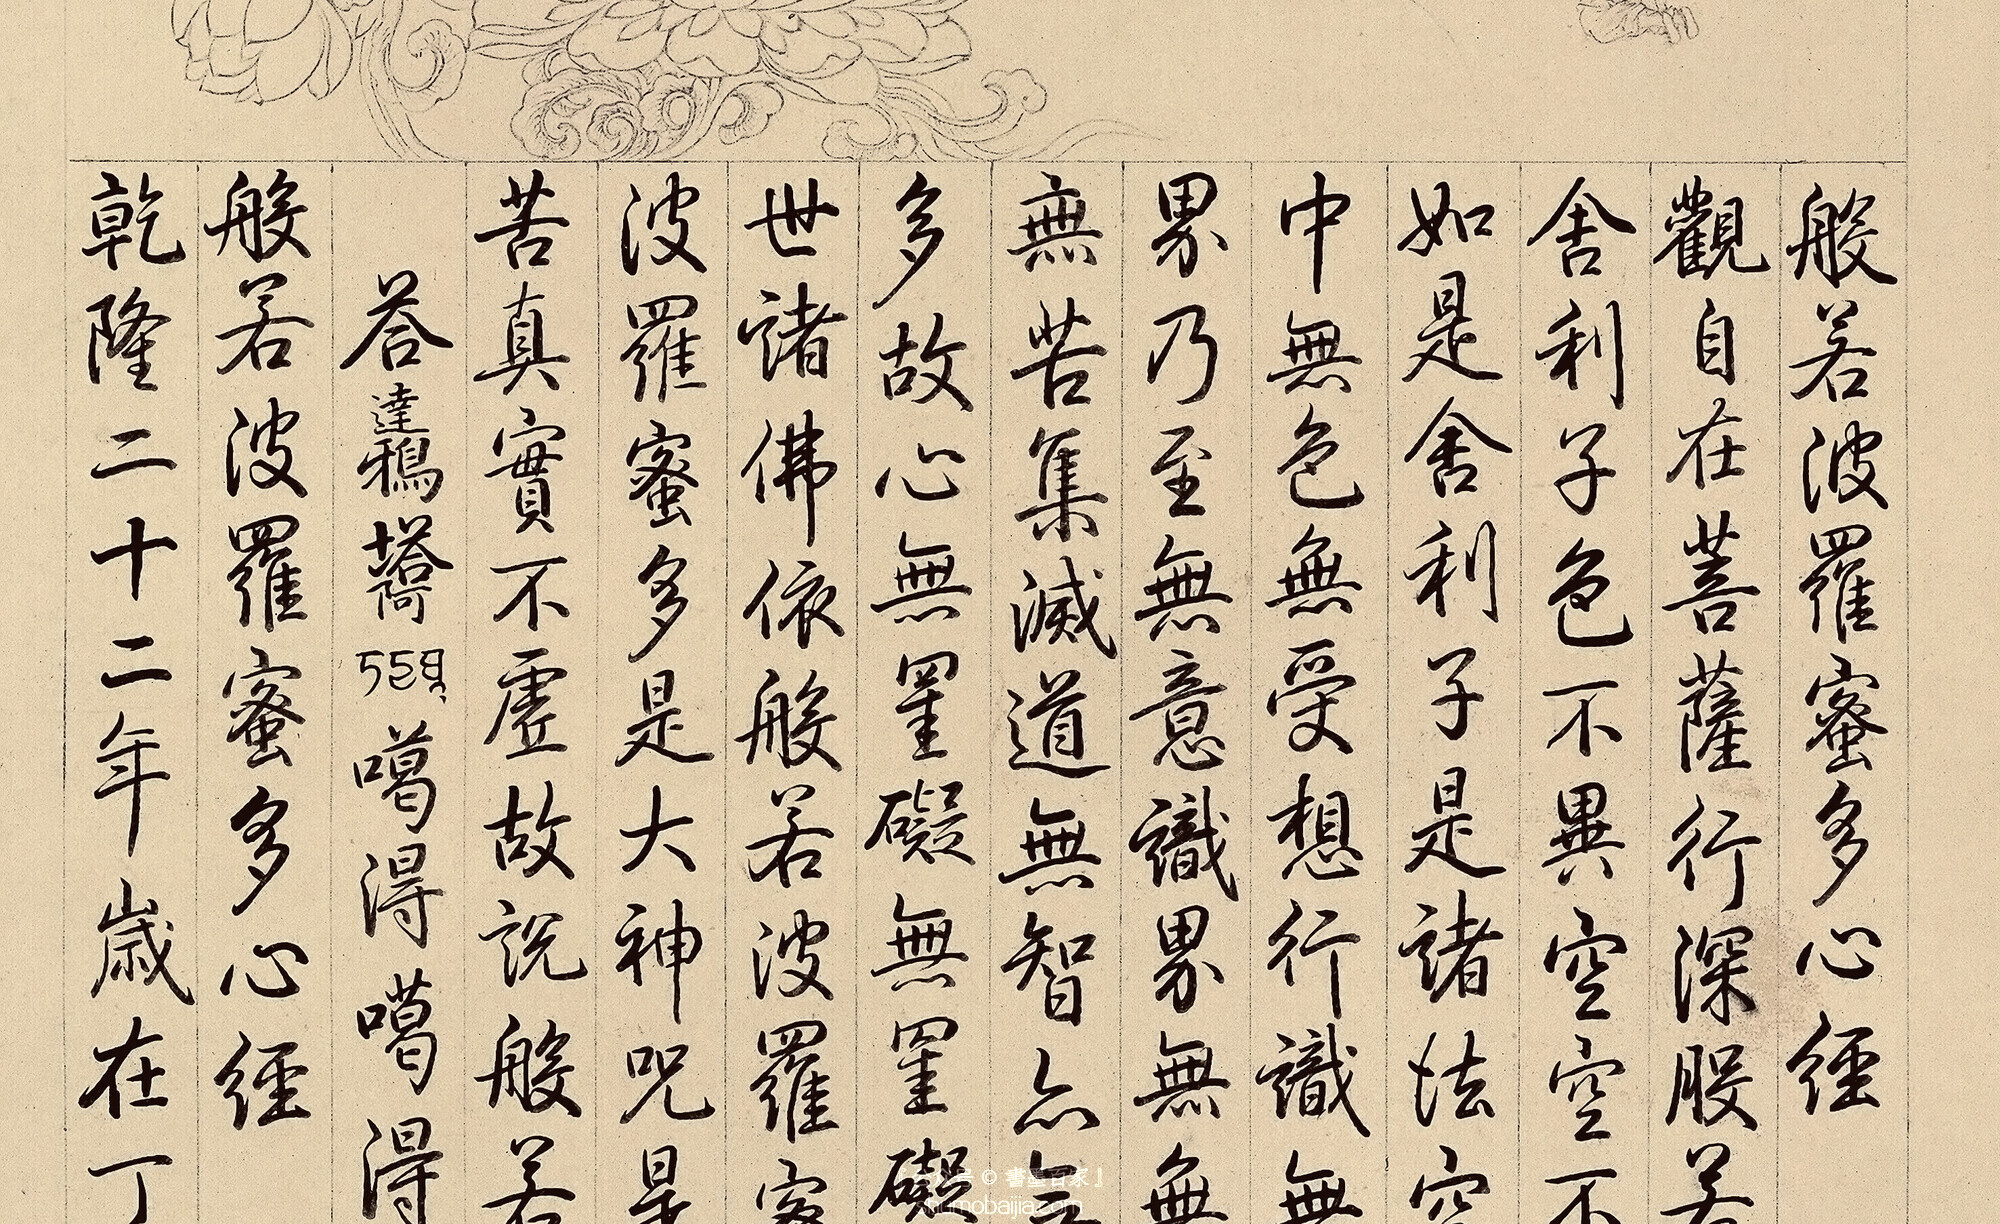 般若波羅蜜多心經
觀自在菩薩行深般若
舍利子色不異空空不
如是舍利子是諸法空
中無色無受想行識無
界乃至無意識界無無
無苦集滅道無智亦無
多故心無罣礙無罣礙
世諸佛依般若波羅蜜
波羅蜜多是大神咒是
苦真實不虛故說般若
荅達鴉塔噶得噶得
般若波羅蜜多心經
乾隆二十二年歲在丁
© 書畫百家』
shumobaijia.com